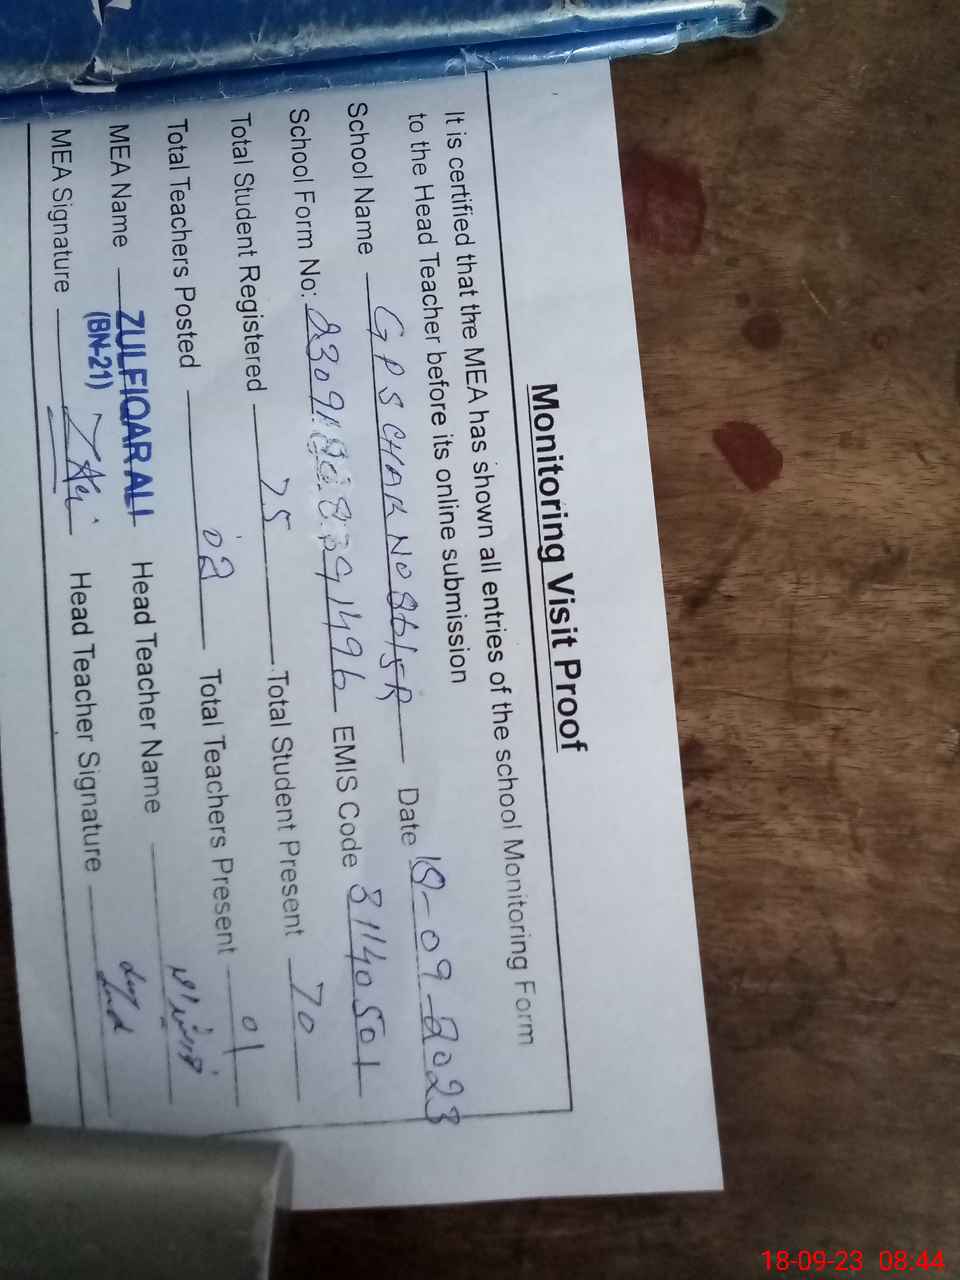 Monitoring Visit Proof
It is certified that the MEA has shown all entries of the school Monitoring Form
to the Head Teacher before its online submission
School Name GPS CHAK NO 86/5R Date 18-09-2023
School Form No: 2309 91496 EMIS Code 31140501
Total Student Registered 75 Total Student Present 70
Total Teachers Posted 02 Total Teachers Present 01
MEA Name ZULFIQAR ALI Head Teacher Name
(BN-21)
MEA Signature ZAli Head Teacher Signature
18-09-23 08:44